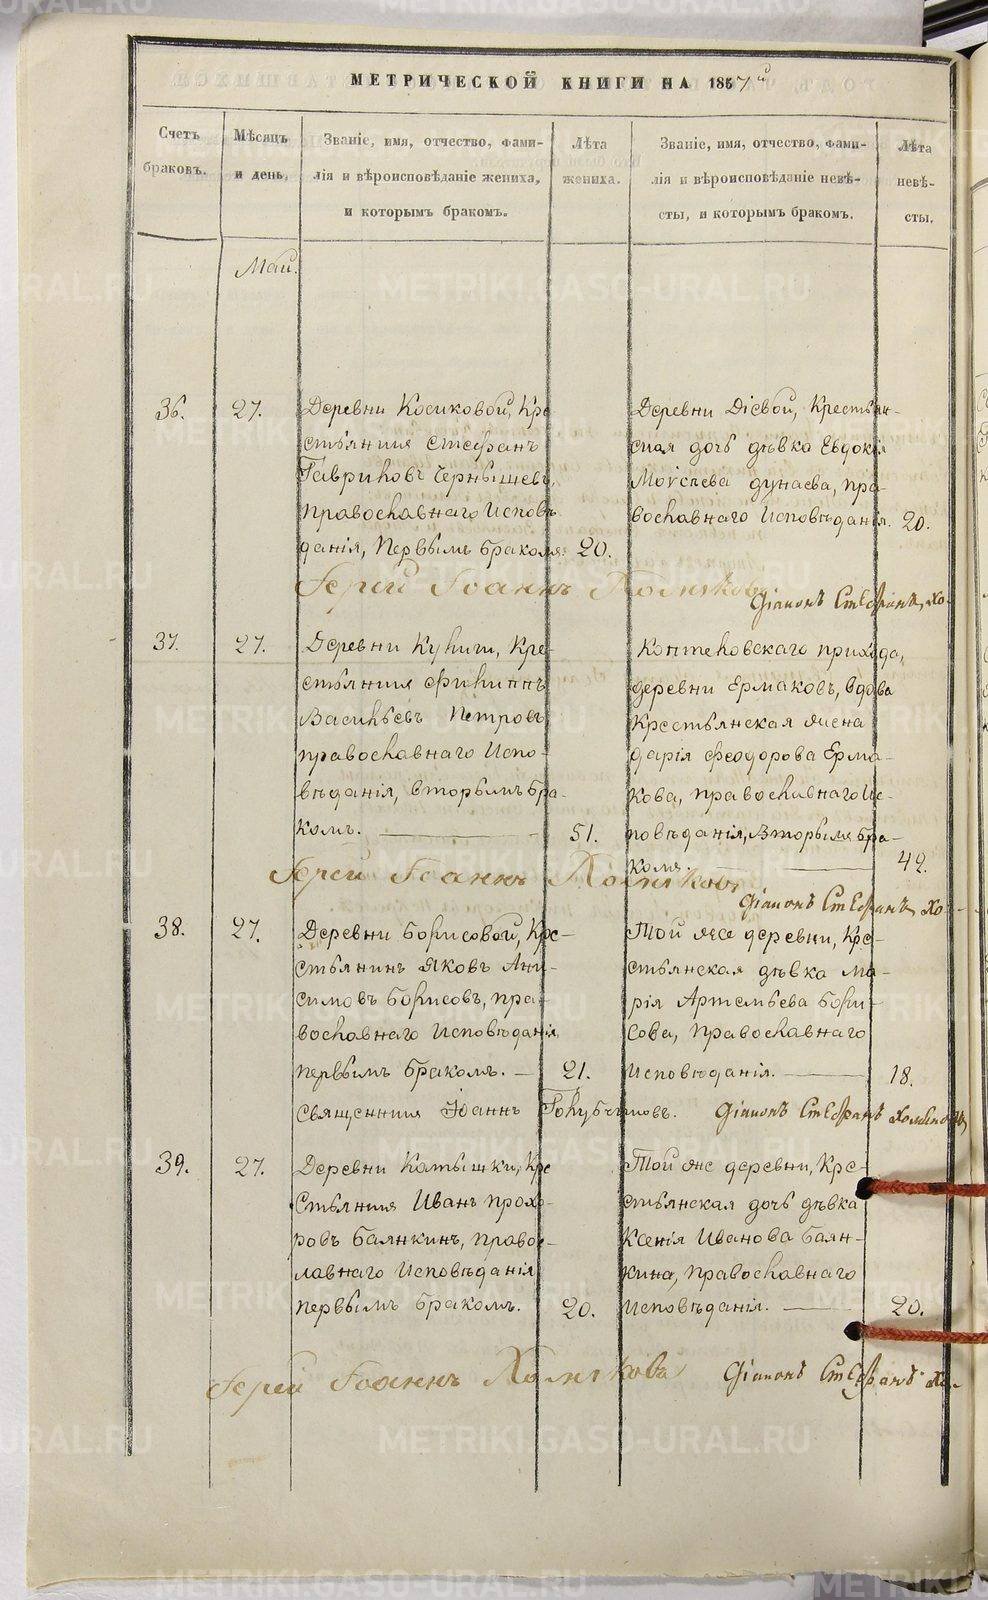 МЕТРИЧЕСКОЙ КНИГИ НА 1857й
Счетъ браковъ.
Мѣсяцъ и день.
Званіе, имя, отчество, фами-
лія и вѣроисповѣданіе жениха,
и которымъ бракомъ.
Лѣта жениха.
Званіе, имя, отчество, фами-
лія и вѣроисповѣданіе невѣ-
сты, и которымъ бракомъ.
Лѣта невѣ-
сты.
Май.
36.
27.
Деревни Косиковой, Кре
стьянинъ Стефанъ
Гавриловъ Чернышевъ,
православнаго Исповѣ
данія, Первымъ бракомъ.
20.
Деревни Дѣевой, Крестьян-
ская дочь дѣвка Евдокія
Моѵсеева Дунаева, пра-
вославнаго Исповѣданія.
20.
Іерей Іоаннъ Холмяковъ
Діаконъ Стефанъ Хо-
37.
27.
Деревни Кулиги, Кре-
стьянинъ Филиппъ
Васильевъ Петровъ,
православнаго Испо-
вѣданія, вторымъ бра-
комъ.
51.
Коптеловскаго прихода,
деревни Ермаковъ, вдова
Крестьянская жена
Дарія Феодорова Ерма-
кова, православнаго Ис-
повѣданія, Вторымъ бра-
комъ.
42.
Іерей Іоаннъ Холмяковъ
Діаконъ Стефанъ Хо-
38.
27.
Деревни Борисовой, Кре-
стьянинъ Яковъ Ани-
симовъ Борисовъ, пра-
вославнаго Исповѣданія
первымъ бракомъ.
21.
Той же деревни, Кре-
стьянская дѣвка Ма-
рія Артемьева Бори-
сова, Православнаго
Исповѣданія.
18.
Священникъ Іоаннъ Голубчиковъ.
Діаконъ Стефанъ Холмяковъ
39.
27.
Деревни Катышки, Кре
стьянинъ Иванъ Прохо-
ровъ Баянкинъ, Право-
славнаго Исповѣданія
первымъ бракомъ.
20.
Той же деревни, Кре-
стьянская дочь дѣвка
Ксенія Иванова Баян-
кина, православнаго
Исповѣданія.
20.
Іерей Іоаннъ Холмяковъ
Діаконъ Стефанъ Хо-
METRIKI.GASO-URAL.RU